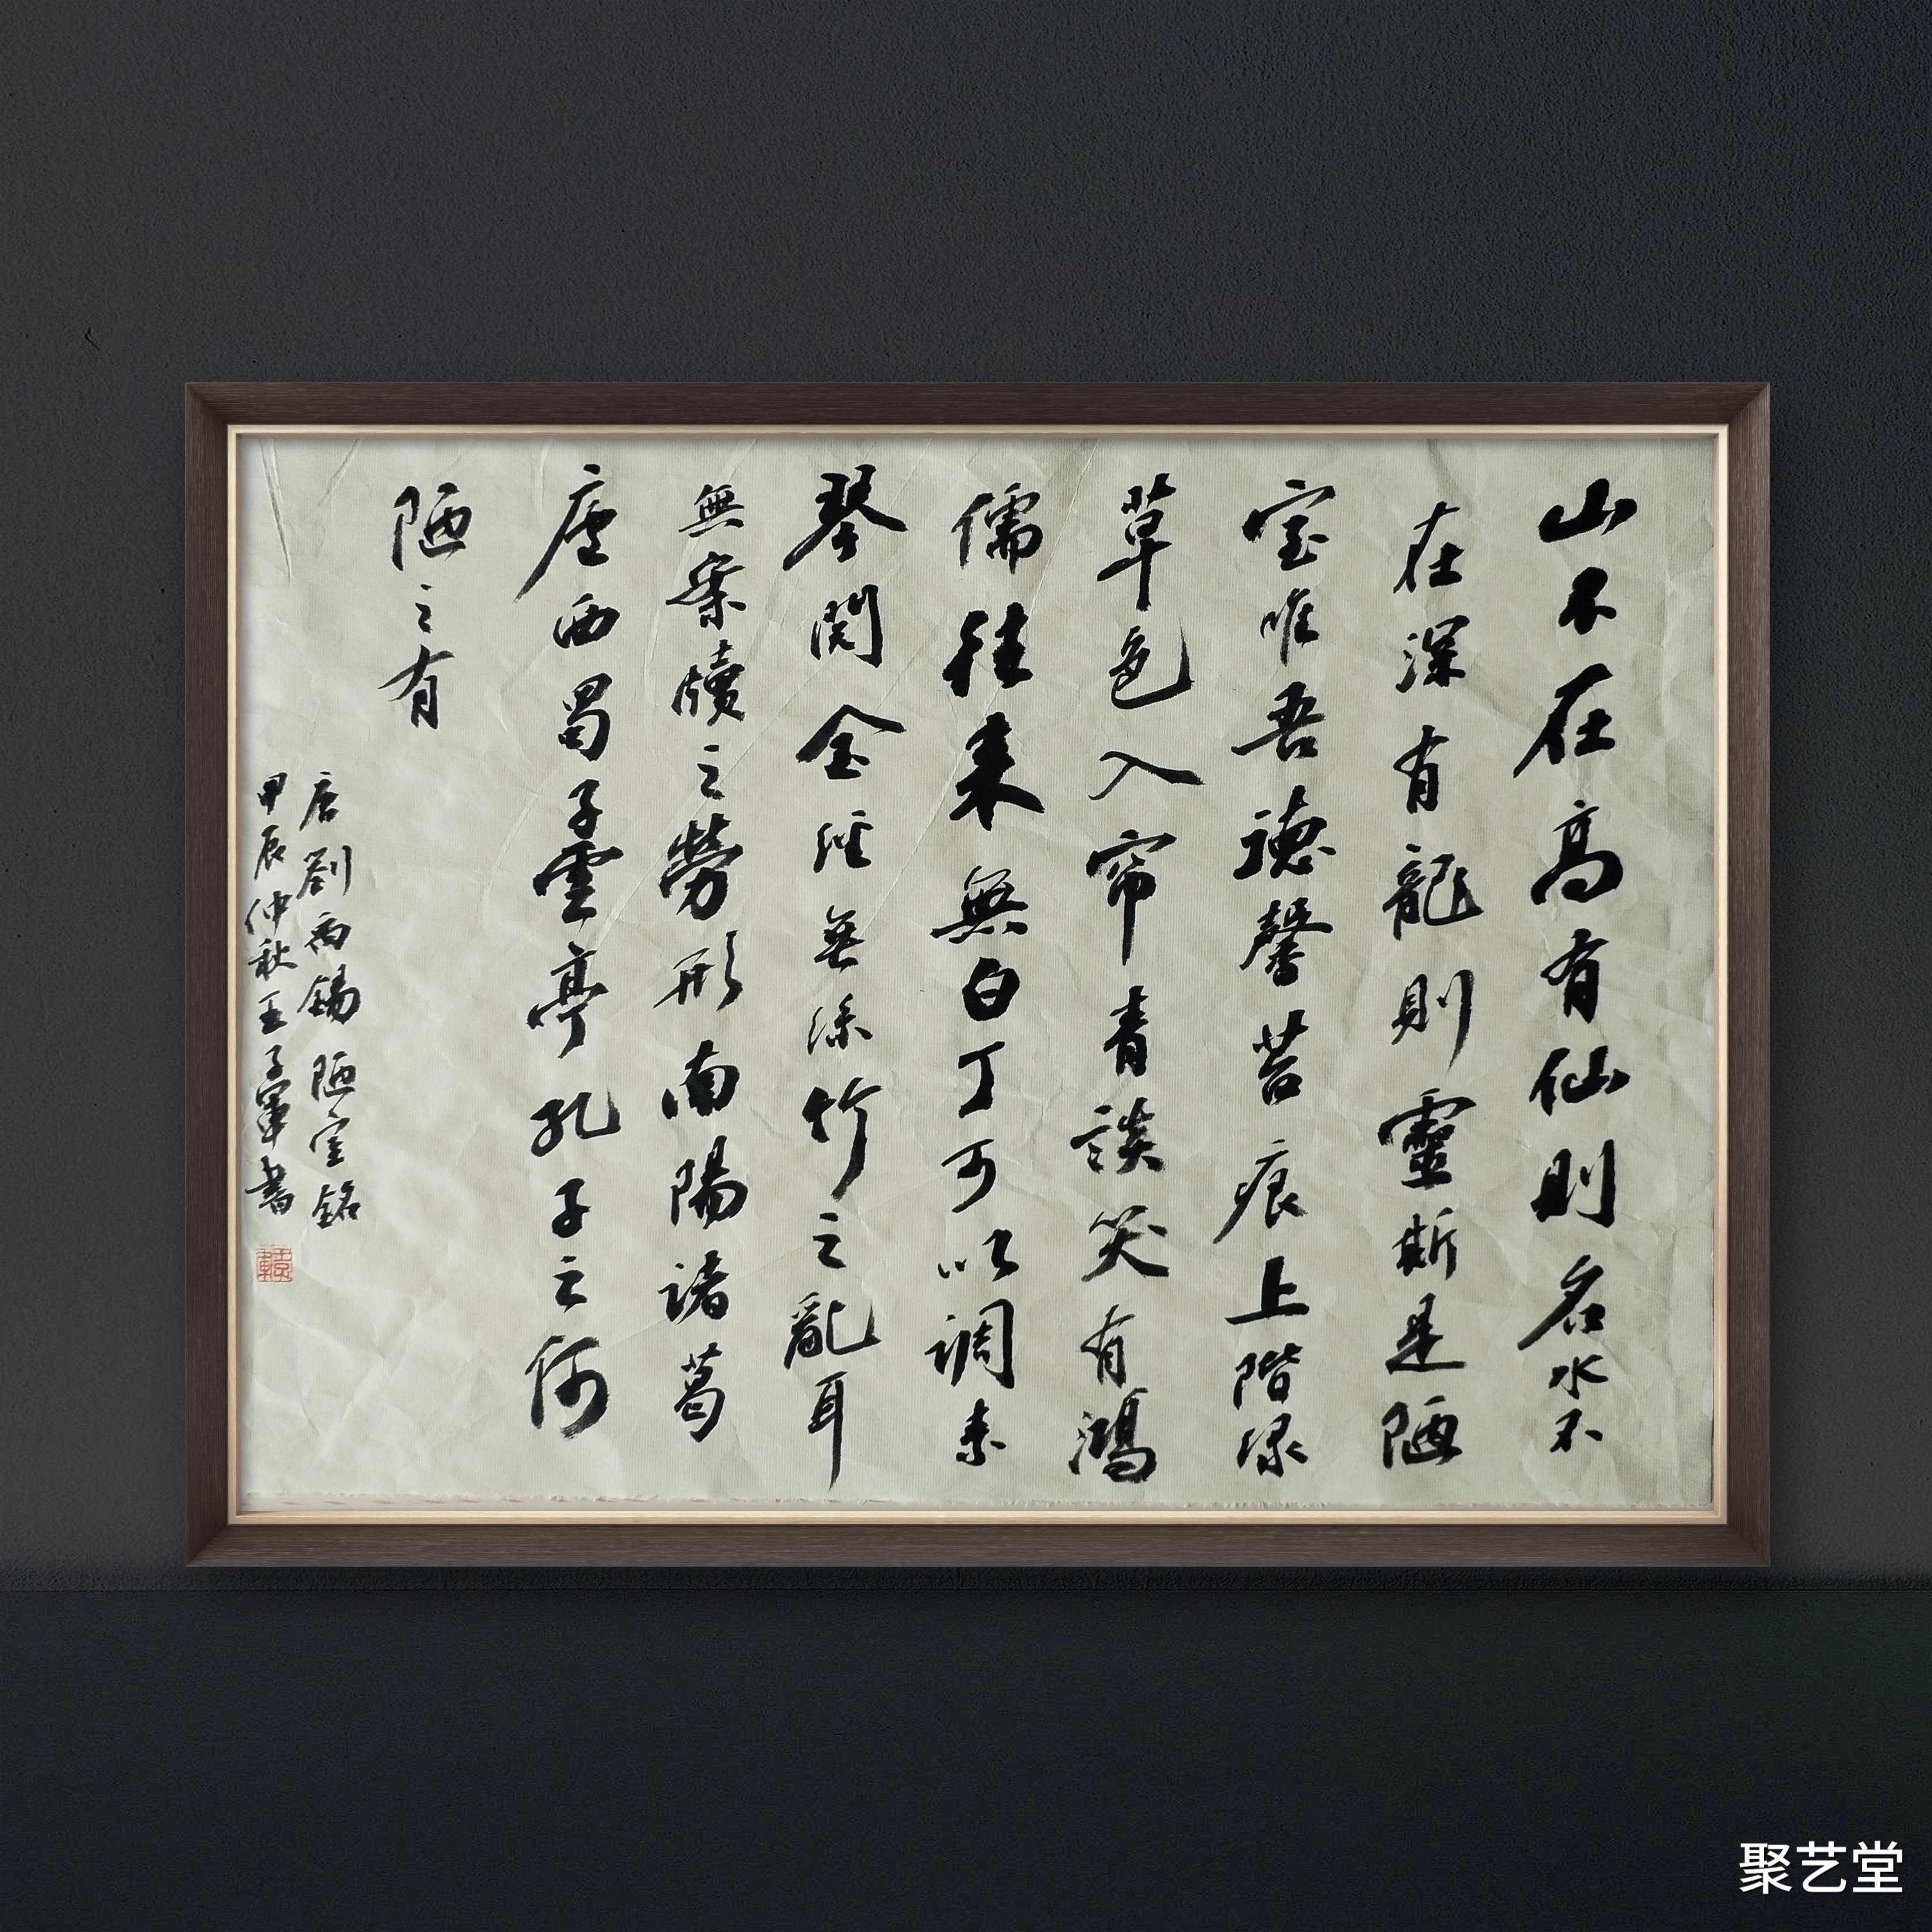 山不在高有仙則名水不
在深有龍則靈斯是陋
室唯吾德馨苔痕上階緑
草色入帘青談笑有鴻
儒往来無白丁可以調素
琴閱金經無絲竹之亂耳
無案牘之勞形南陽諸葛
廬西蜀子雲亭孔子云何
陋之有
唐劉禹錫陋室銘
甲辰仲秋王子軍書
聚艺堂